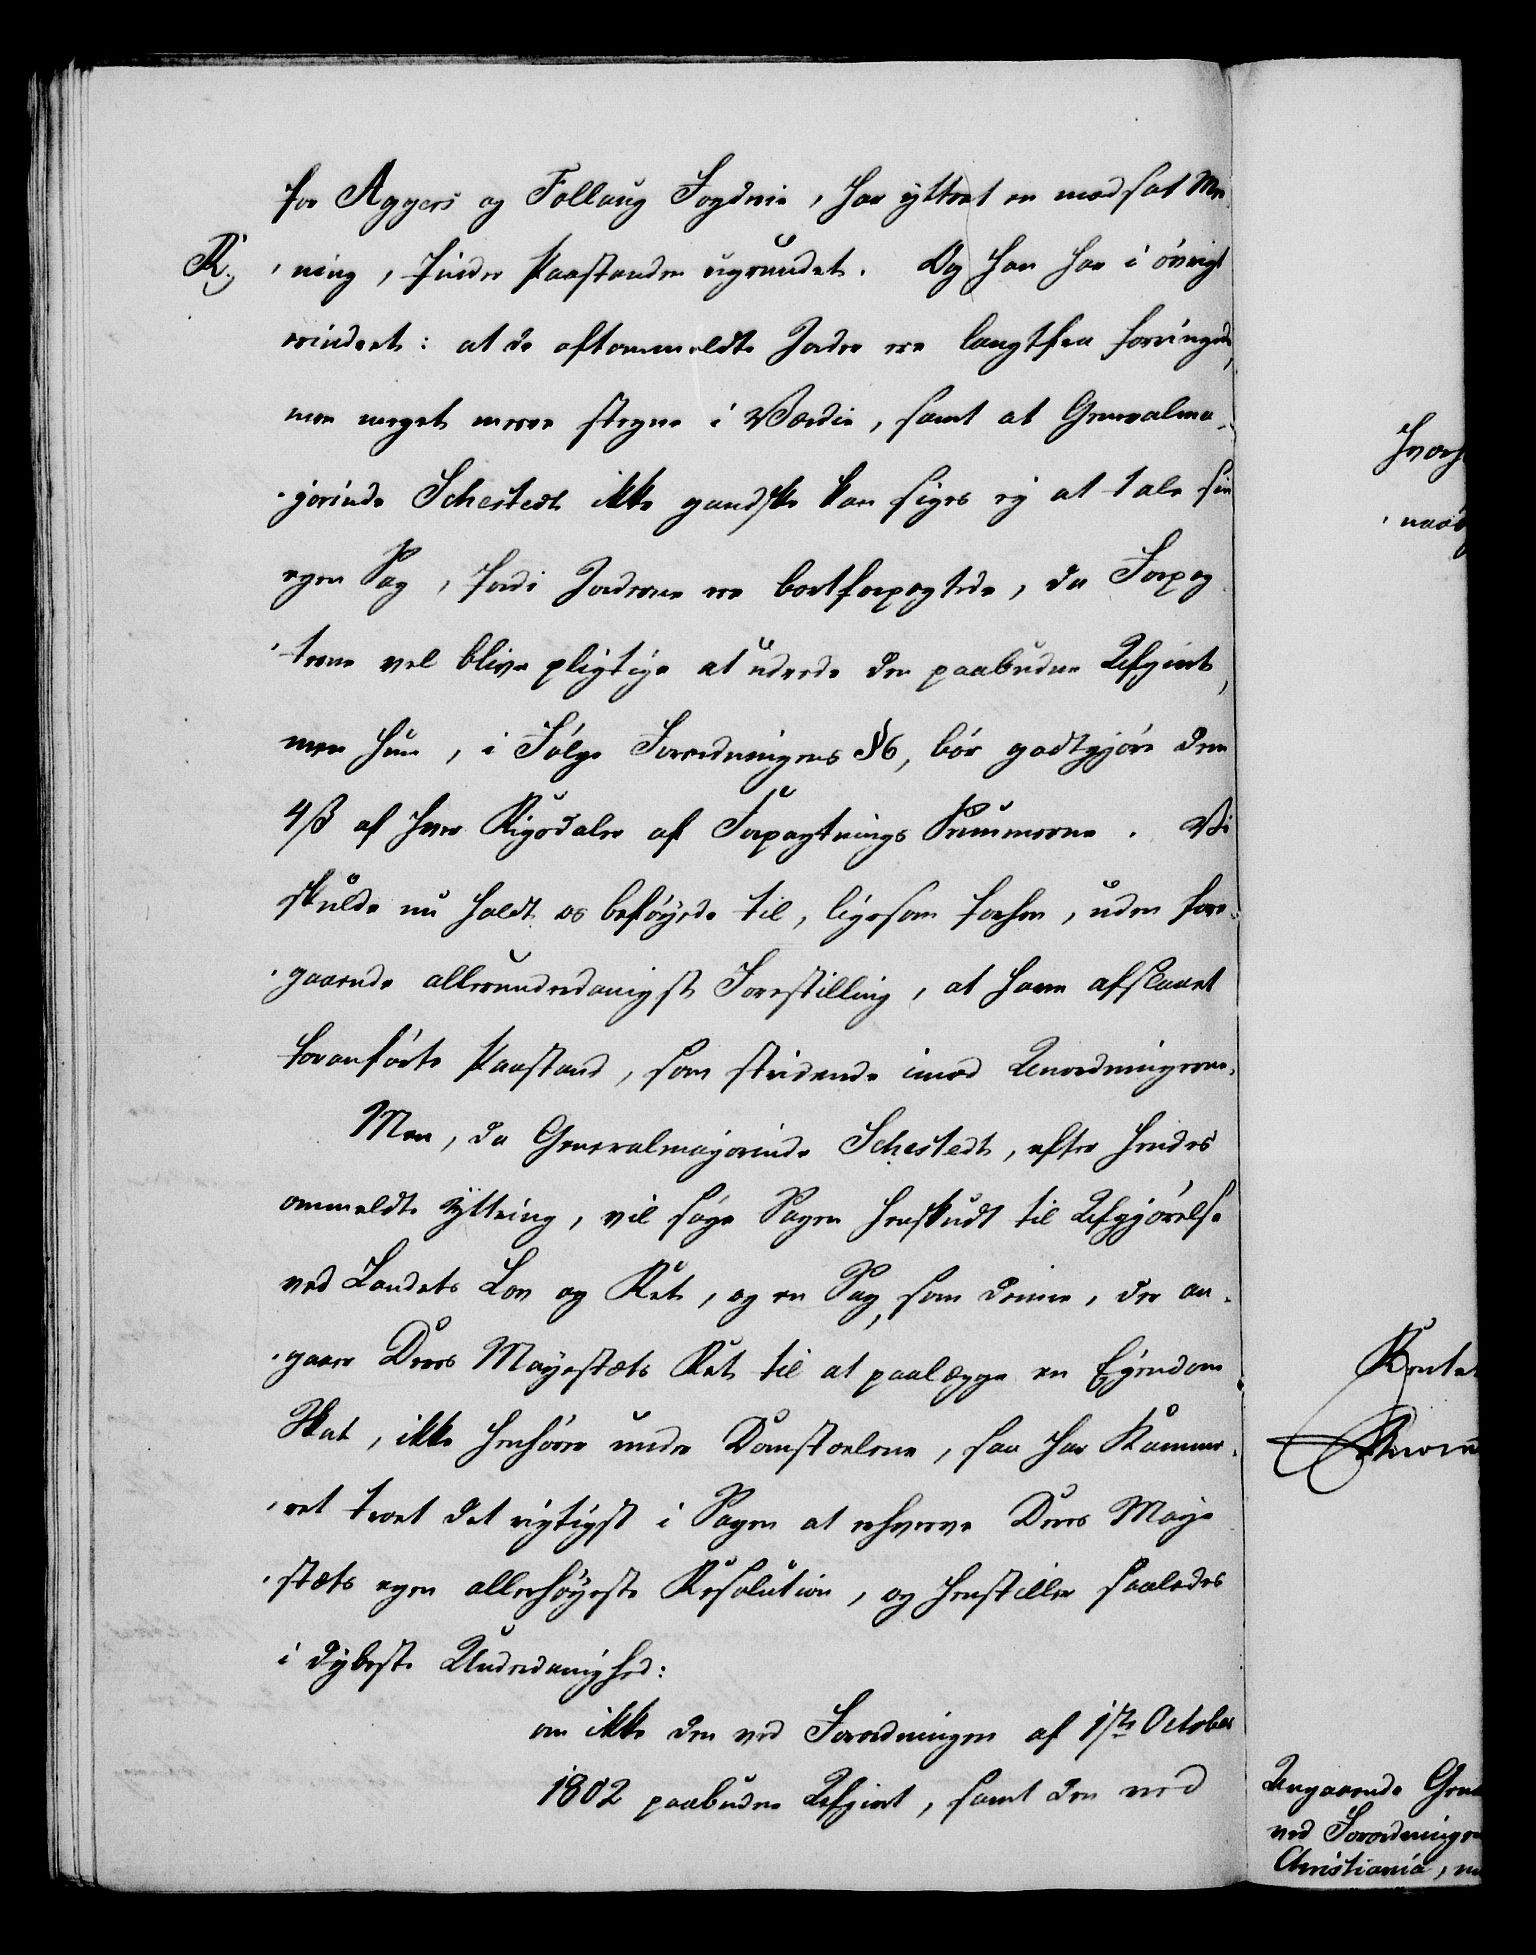 for Aggers og Follaug Fogderie, har yttret en modsat Me-
R.
,ning, finder Paastanden ugrundet. Og han har i övrigt
erindret: at de oftommeldte Jorder ere langtfra forringede,
men meget meere stegne i Værdie, samt at Generalma-
-jorinde Schestedt ikke gandske kan siges ej at tale sin
egen Sag, fordi Jorderne ere bortforpagtede, da Forpag
-terne vel blive pligtige at udrede den paabudne Afgivt,
men hun, i Fölge Forordningens § 6, bör godtgjöre dem
4 ß af hver Rigsdaler af Forpagtnings Summerne. Vi
skulde nu holdt os beföyede til, ligesom forhen, uden fore-
-gaaende allerunderdanigst Forestilling, at have afslaaet
foranförte Paastand, som stridende imod Anordningerne.
Men, da Generalmajorinde Schestedt, efter hendes
ommeldte Yttring, vil söge Sagen henskudt til Afgjörelse
ved Landets Lov og Ret, og en Sag, som denne, der an-
-gaaer Deres Mayestæts Ret til at paalægge en Ejendom
Skat, ikke henhörer under Domstolene, saa har Kamme-
-ret troet det rigtigst i Sagen at erhverve Deres Maye
-stæts egen allerhöyeste Resolution, og henstiller saaledes
i dybeste Underdanighed:
om ikke den ved Forordningen af 1ste October
1802 paabudne Afgivt, samt den ved
Angaaende Gene
ved Forordningen
Christiania,